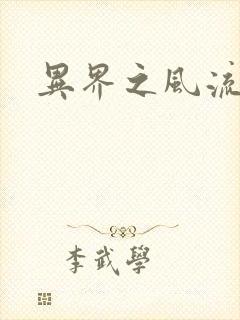 異界之風流
李武學